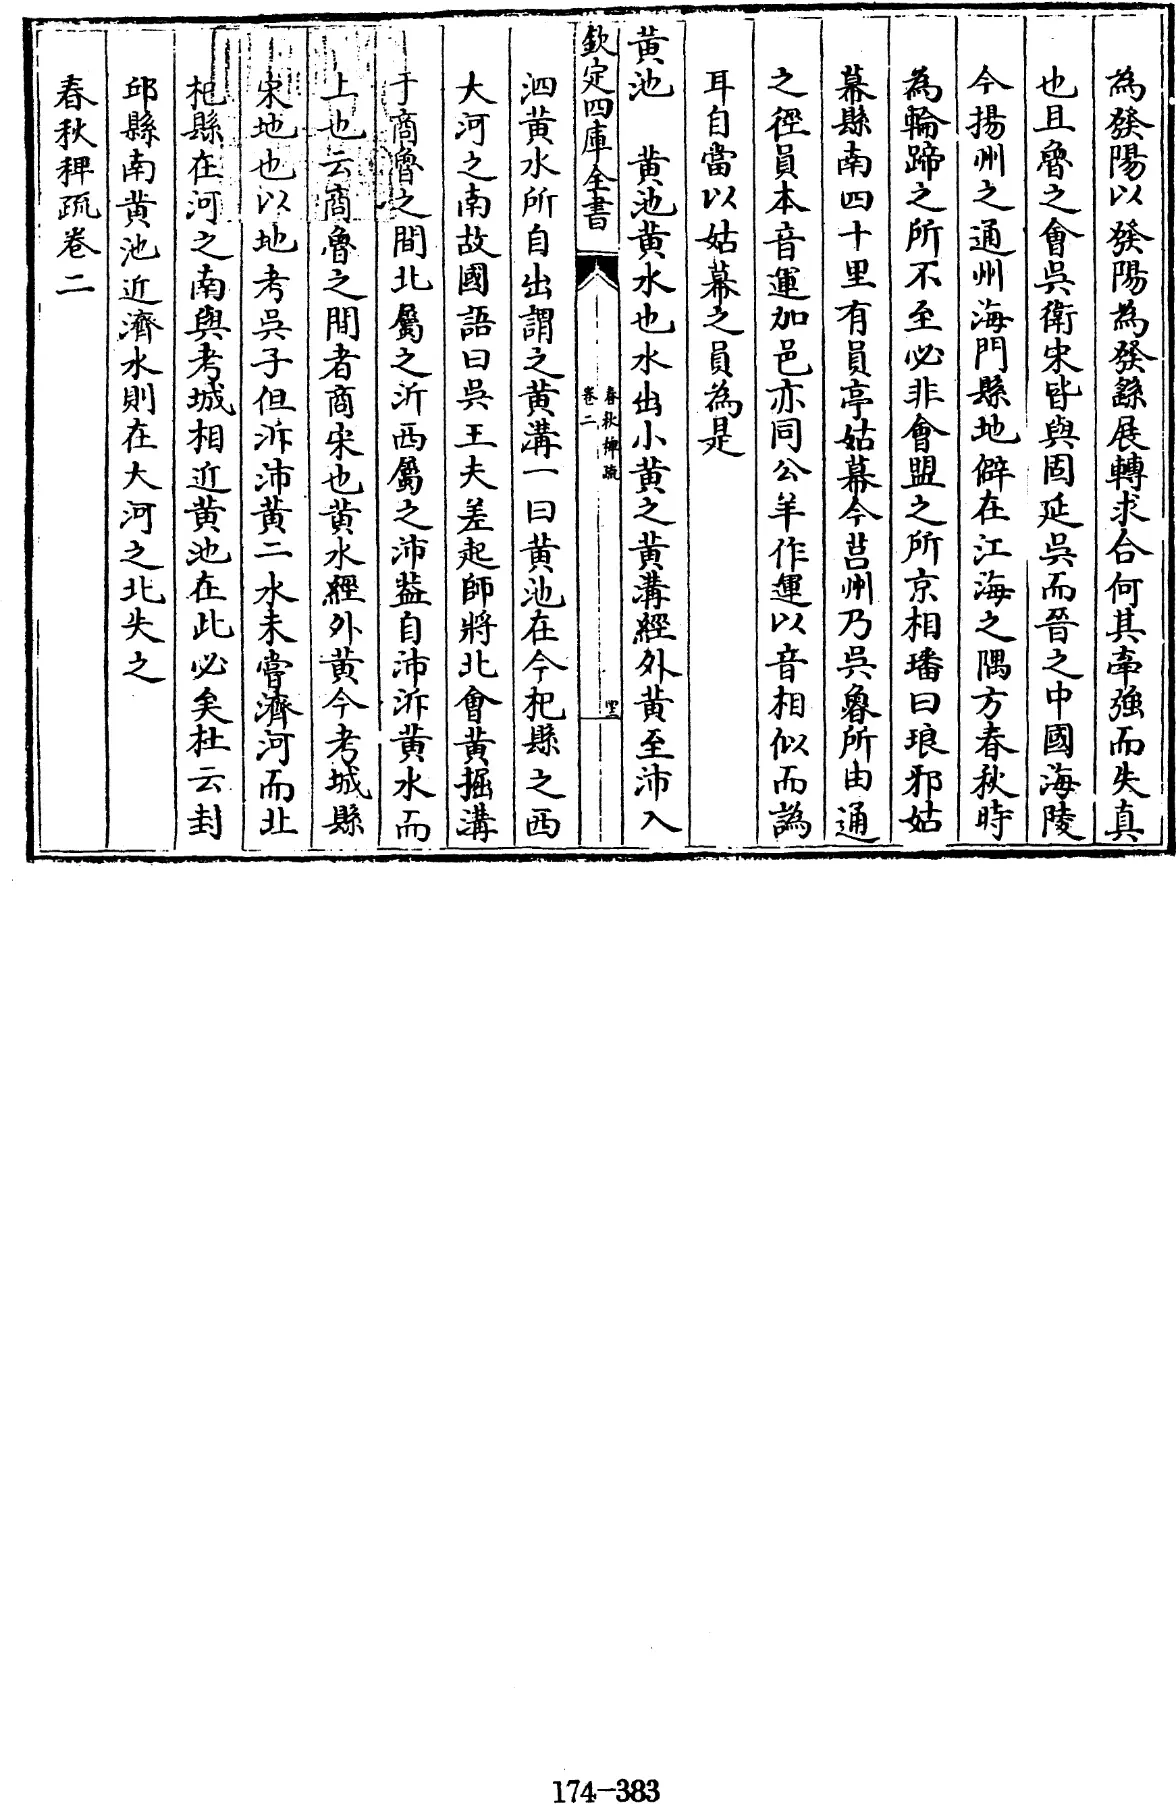 為發陽以發陽為發繇展轉求合何其牽強而失真
也且魯之會吳衛宋皆與固延吳而晉之中國海陵
今揚州之通州海門縣地僻在江海之隅方春秋時
為輪蹄之所不至必非會盟之所京相璠曰琅邪姑
幕縣南四十里有員亭姑幕今莒州乃吳魯所由通
之徑員本音運加邑亦同公羊作運以音相似而譌
耳自當以姑幕之員為是
黃池 黃池黃水也水出小黃之黃溝經外黃至沛入
欽定四庫全書
春秋稗疏
卷二
泗黃水所自出謂之黃溝一曰黃池在今杞縣之西
大河之南故國語曰吳王夫差起師將北會黃掘溝
于商魯之間北屬之沂西屬之沛葢自沛泝黃水而
上也云商魯之間者商宋也黃水經外黃今考城縣
宋地也以地考吳子但泝沛黃二水未嘗濟河而北
杞縣在河之南與考城相近黃池在此必矣杜云封
邱縣南黃池近濟水則在大河之北失之
春秋稗疏卷二
174-383